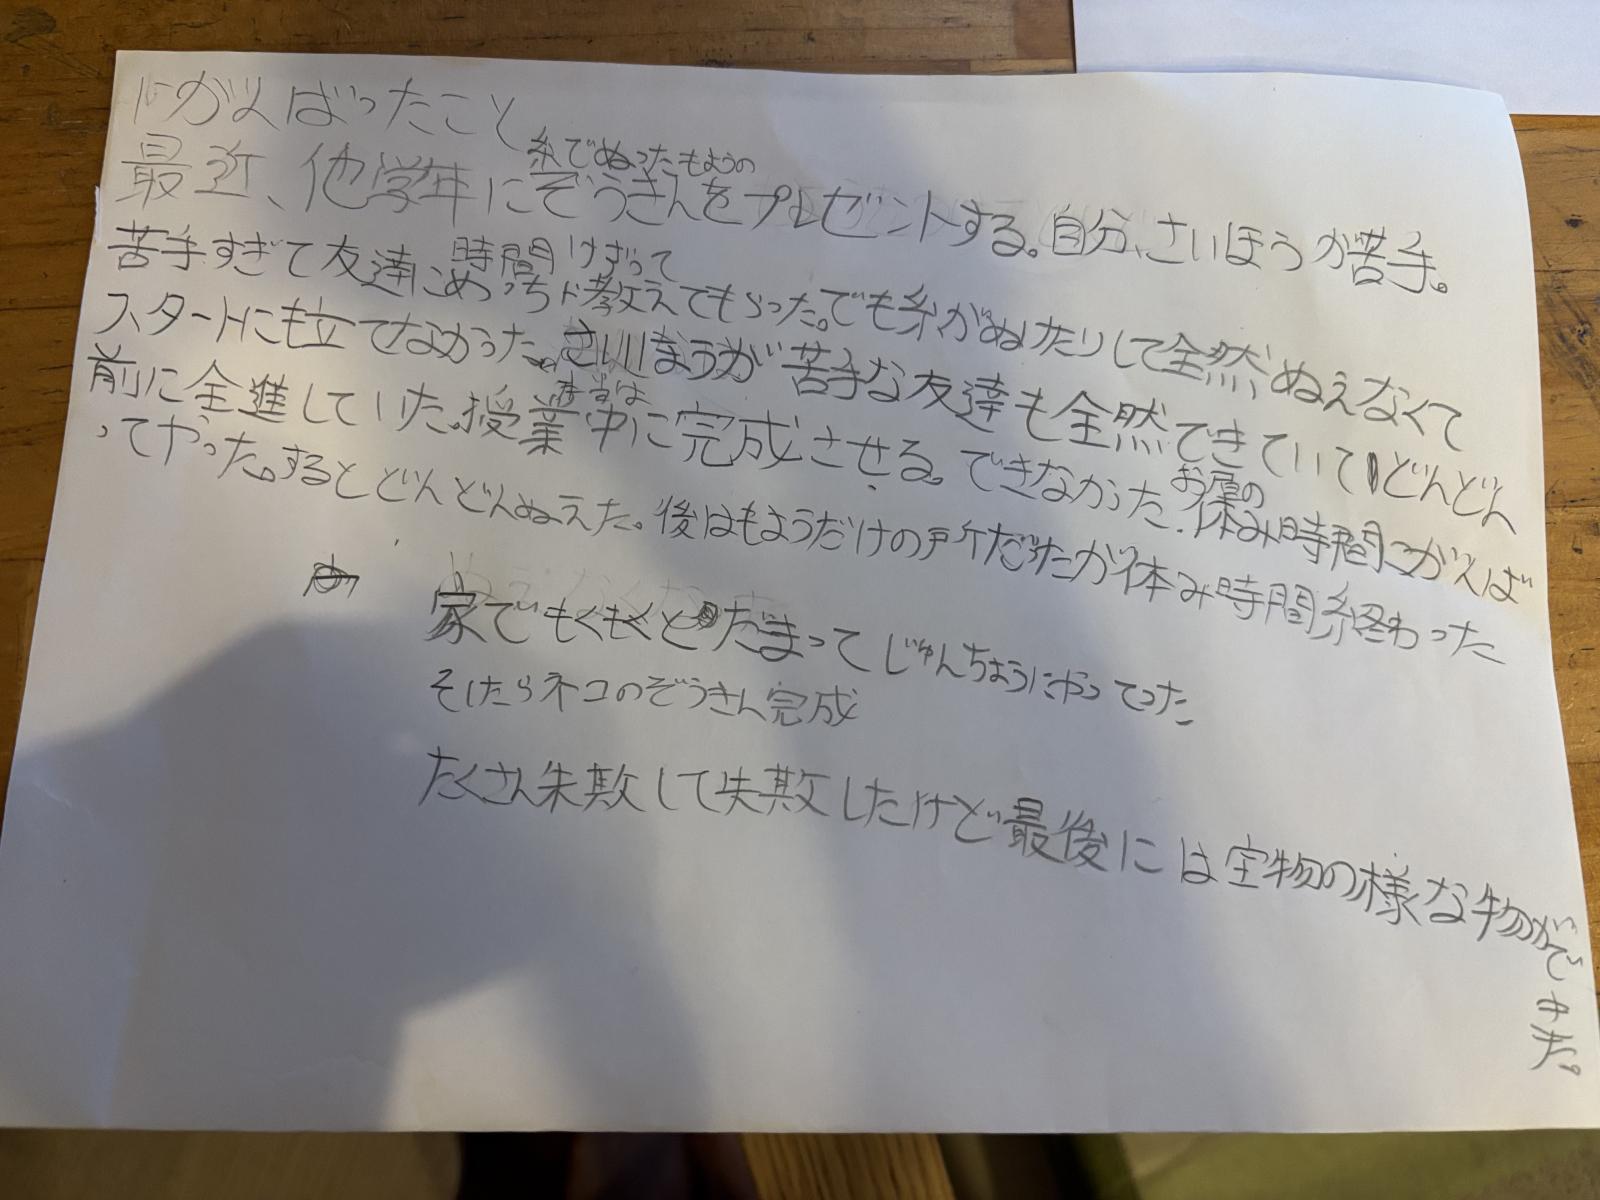 がんばったこと
糸でぬったもようの
最近、他学年にぞうきんをプレゼントする。自分、さいほうが苦手。
時間けずって
苦手すぎて友達にめっちゃ教えてもらった。でも糸がぬけたりして全然、ぬえなくて
スタートにも立てなかった。さいほうが苦手な友達も全然できていてどんどん
前に全進していた。授業中に完成させる。できなかった。お昼の休み時間にがんば
ってやった。するとどんどんぬえた。後はもようだけの所だったが休み時間終わった
家でもくもくとだまってじゅんちょうにやってった
そしたらネコのぞうきん完成
たくさん失敗して失敗したけど最後には宝物の様な物ができました。